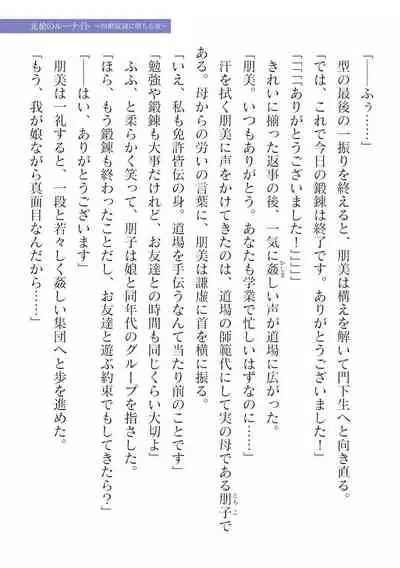 「――ふぅ……」
型の最後の一振りを終えると、朋美は構えを解いて門下生へと向き直る。
「では、これで今日の鍛錬は終了です。ありがとうございました！」
「「「「ありがとうございました！」」」」
きれいに揃った返事の後、一気に姦しい声が道場に広がった。
「朋美。いつもありがとう。あなたも学業で忙しいはずなのに……」
汗を拭く朋美に声をかけてきたのは、道場の師範代にして実の母である朋子で
ある。母からの労いの言葉に、朋美は謙虚に首を横に振る。
「いえ、私も免許皆伝の身。道場を手伝うなんて当たり前のことです」
「勉強や鍛錬も大事だけれど、お友達との時間も同じくらい大切よ」
ふふ、と柔らかく笑って、朋子は娘と同年代のグループを指さした。
「ほら、もう鍛錬も終わったことだし、お友達と遊ぶ約束でもしてきたら？」
「――はい、ありがとうございます」
朋美は一礼すると、一段と若々しく姦しい集団へと歩を進めた。
「もう、我が娘ながら真面目なんだから……」